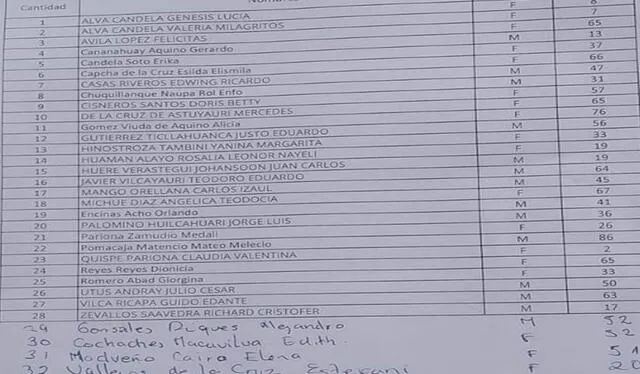 Cantidad
1 ALVA CANDELA GENESIS LUCIA F 8
2 ALVA CANDELA VALERIA MILAGRITOS F 7
3 AVILA LOPEZ FELICITAS F 65
4 Cananahuay Aquino Gerardo M 13
5 Candela Soto Erika F 37
6 Capcha de la Cruz Esilda Elismila F 66
7 CASAS RIVEROS EDWING RICARDO M 47
8 Chuquillanque Naupa Rol Enfo M 31
9 CISNEROS SANTOS DORIS BETTY F 57
10 DE LA CRUZ DE ASTUYAURI MERCEDES F 65
11 Gomez Viuda de Aquino Alicia F 76
12 GUTIERREZ TICLLAHUANCA JUSTO EDUARDO M 56
13 HINOSTROZA TAMBINI YANINA MARGARITA F 33
14 HUAMAN ALAYO ROSALIA LEONOR NAYELI F 19
15 HUERE VERASTEGUI JOHANSOON JUAN CARLOS M 19
16 JAVIER VILCAYAURI TEODORO EDUARDO M 64
17 MANGO ORELLANA CARLOS IZAUL M 45
18 MICHUE DIAZ ANGELICA TEODOCIA F 67
19 Encinas Acho Orlando M 41
20 PALOMINO HUILCAHUARI JORGE LUIS M 36
21 Pariona Zamudio Medali F 26
22 Pomacaja Matencio Mateo Melecio M 86
23 QUISPE PARIONA CLAUDIA VALENTINA F 2
24 Reyes Reyes Dionicia F 65
25 Romero Abad Giorgina F 33
26 UTUS ANDRAY JULIO CESAR M 50
27 VILCA RICAPA GUIDO EDANTE M 63
28 ZEVALLOS SAAVEDRA RICHARD CRISTOFER M 17
29 Gonsales Diques Alejandro M 52
30 Cochaches Macavilva Edith. F 52
31 Madueño Cairo Elena F 51
32 de la Cruz F 20